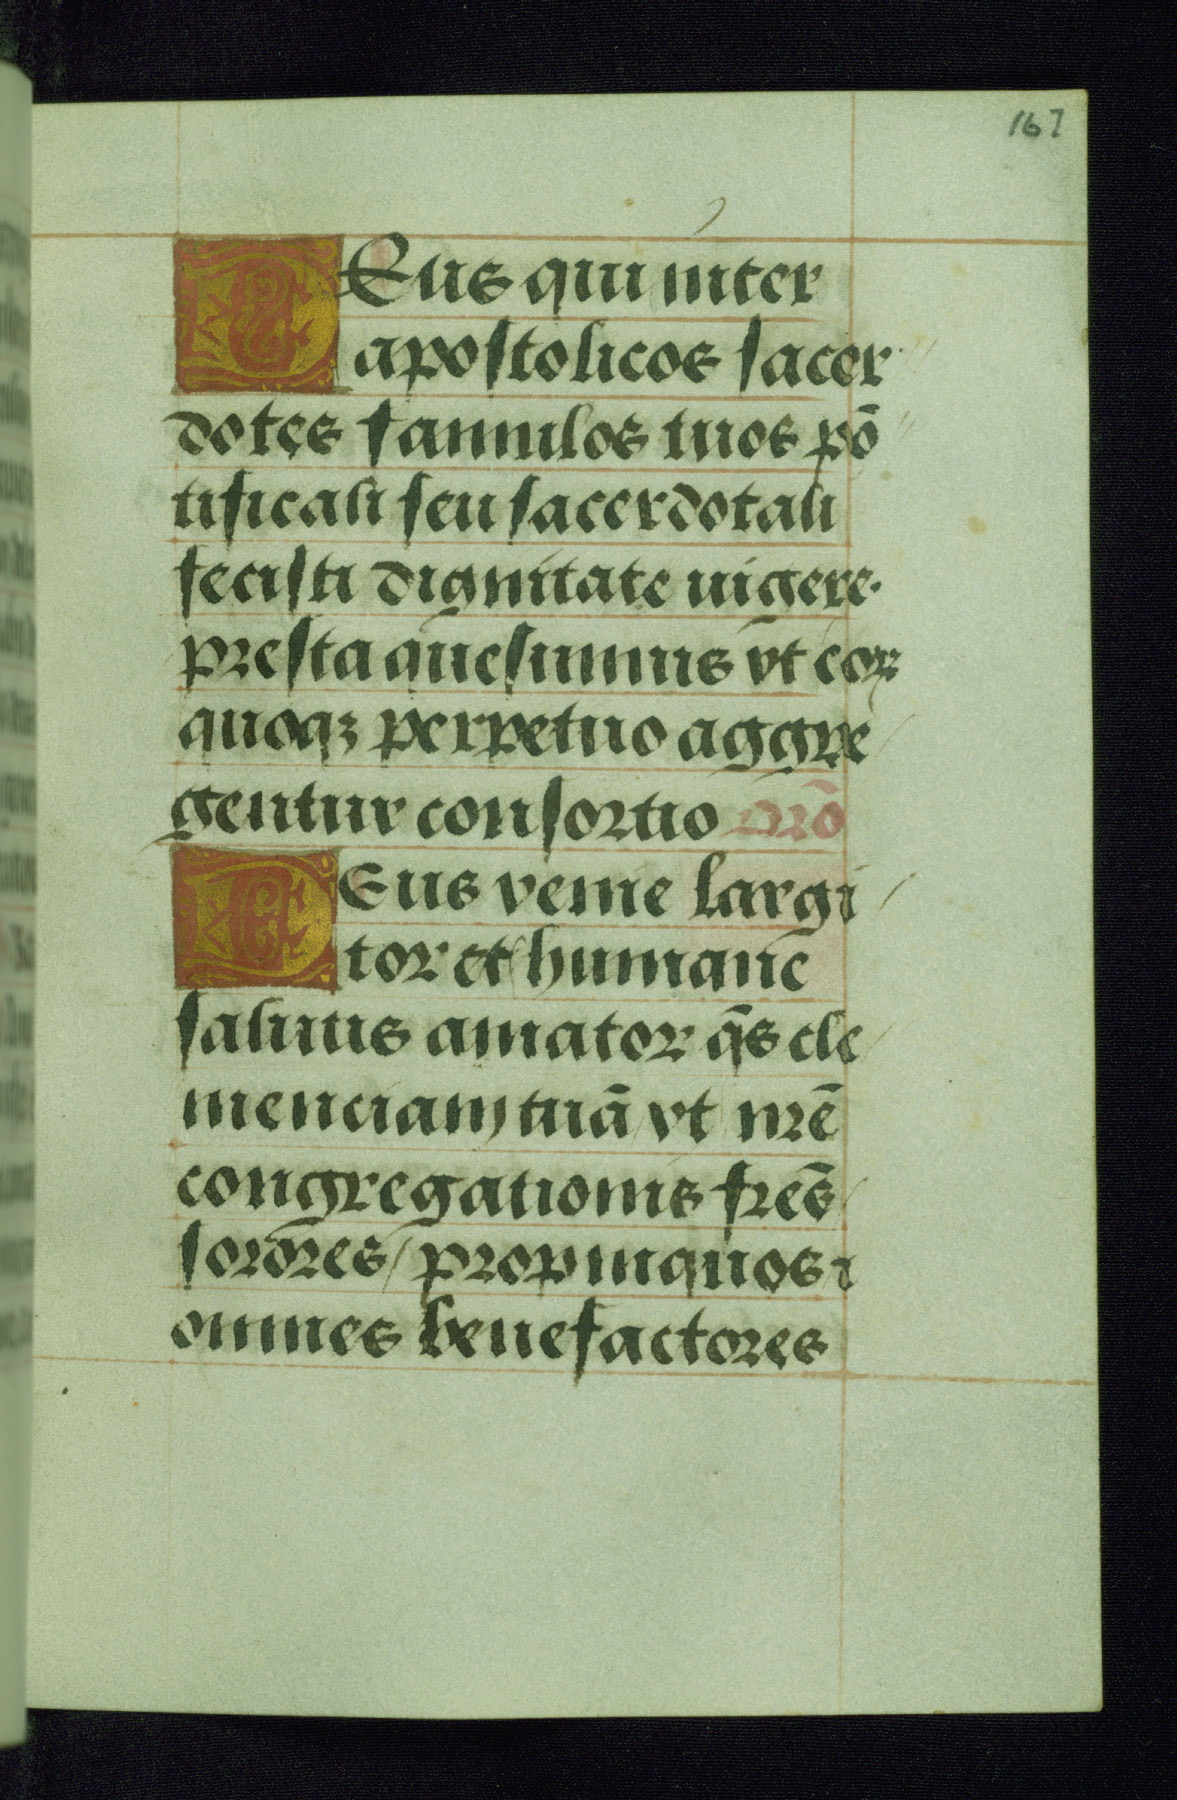 167
DEus qui inter
apostolicos sacer
dotes famulos tuos põ
tificali seu sacerdotali
fecisti dignitate uigere.
presta quesumus vt eoꝝ
quoqꝫ perpetuo aggre
gentur consortio orõ
DEus venie largi
tor et humane
salutis amator q̃s cle
menciam tuã vt nr̃e
congregationis fr̃es
sorores / propinquos ⁊
omnes benefactores